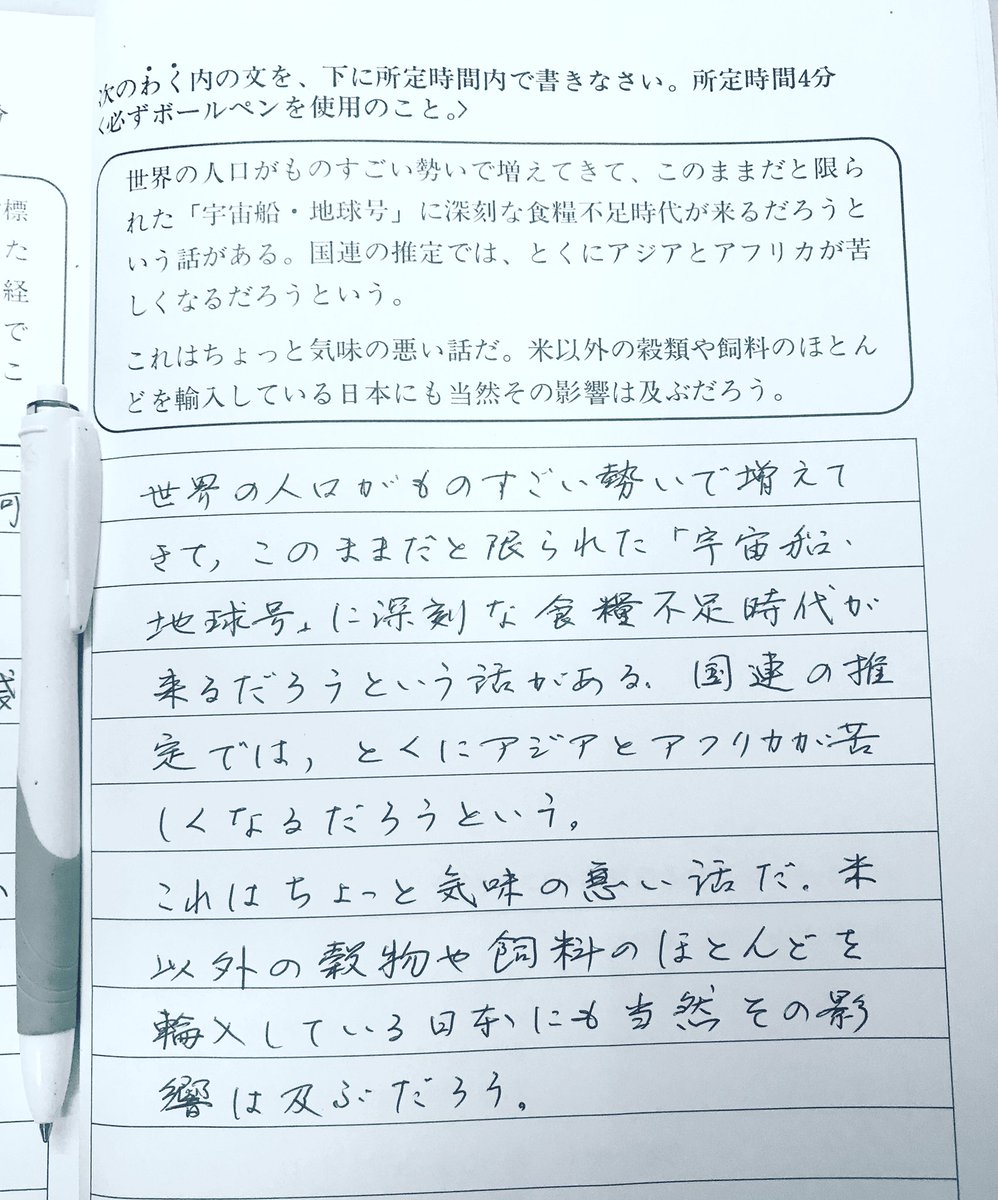 次のわく内の文を、下に所定時間内で書きなさい。所定時間4分
〈必ずボールペンを使用のこと。〉
世界の人口がものすごい勢いで増えてきて、このままだと限ら
れた「宇宙船・地球号」に深刻な食糧不足時代が来るだろうと
いう話がある。国連の推定では、とくにアジアとアフリカが苦
しくなるだろうという。
これはちょっと気味の悪い話だ。米以外の穀類や飼料のほとん
どを輸入している日本にも当然その影響は及ぶだろう。
世界の人口がものすごい勢いで増えて
きて,このままだと限られた「宇宙船・
地球号」に深刻な食糧不足時代が
来るだろうという話がある。国連の推
定では,とくにアジアとアフリカが苦
しくなるだろうという。
これはちょっと気味の悪い話だ。米
以外の穀物や飼料のほとんどを
輪入している日本にも当然その影
響は及ぶだろう。
標
た
経
で
こ